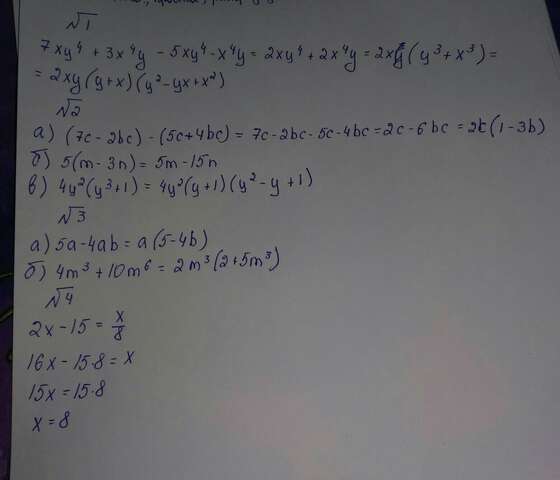 №1
7xy⁴ + 3x⁴y - 5xy⁴ - x⁴y = 2xy⁴ + 2x⁴y = 2xy(y³ + x³) =
= 2xy(y+x)(y² - yx + x²)
№2
а) (7c - 2bc) - (5c + 4bc) = 7c - 2bc - 5c - 4bc = 2c - 6bc = 2c(1 - 3b)
б) 5(m - 3n) = 5m - 15n
в) 4y²(y³+1) = 4y²(y+1)(y² - y + 1)
№3
а) 5a - 4ab = a(5 - 4b)
б) 4m³ + 10m⁶ = 2m³(2 + 5m³)
№4
2x - 15 = x/8
16x - 15·8 = x
15x = 15·8
x = 8